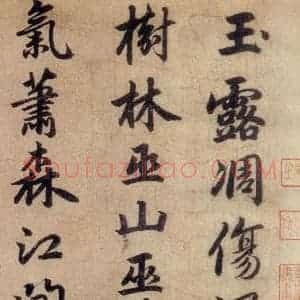 玉露凋傷
樹林巫山巫
氣蕭森江
shufazidiao.com